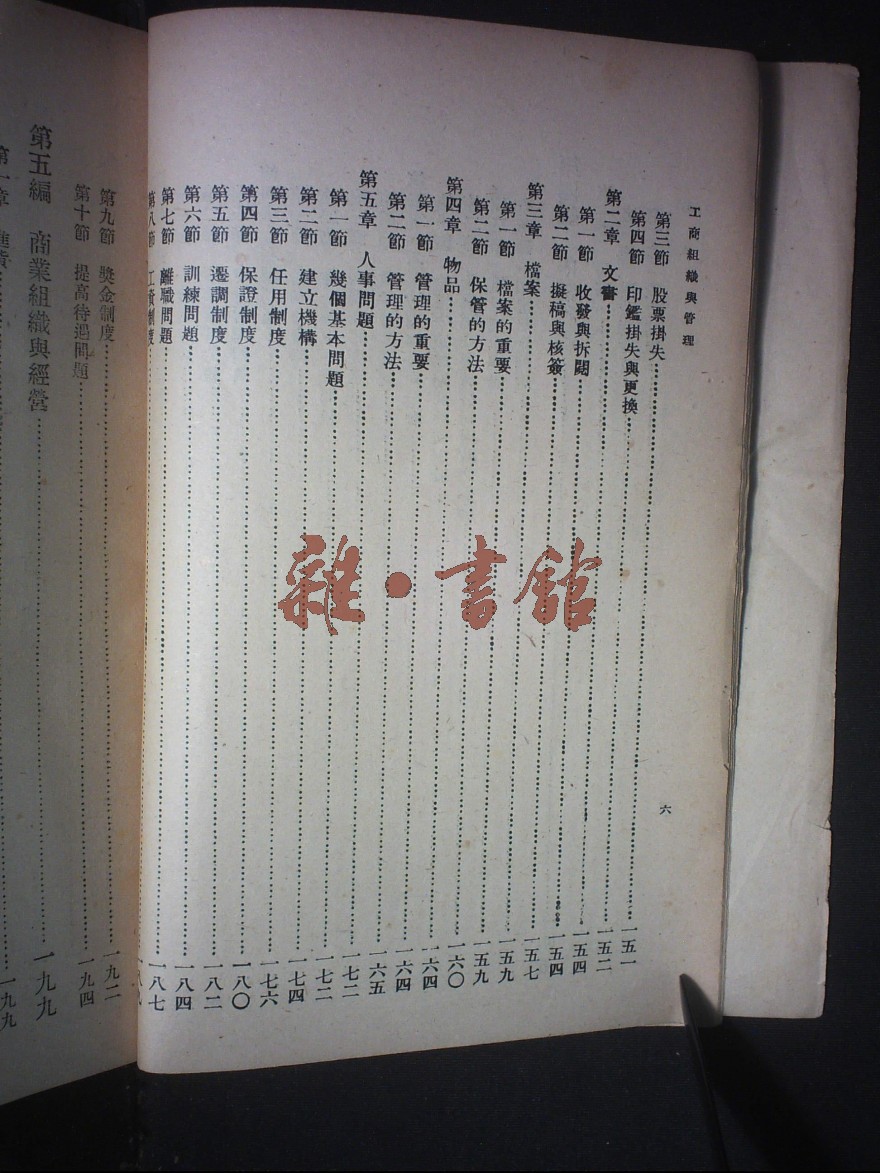 工商組織與管理
六
第三節 股票掛失……一五一
第四節 印鑑掛失與更換……一五二
第二章 文書……一五四
第一節 收發與拆閱……一五四
第二節 擬稿與核簽……一五七
第三章 檔案……一五九
第一節 檔案的重要……一五九
第二節 保管的方法……一六〇
第四章 物品……一六四
第一節 管理的重要……一六四
第二節 管理的方法……一六五
第五章 人事問題……一七二
第一節 幾個基本問題……一七二
第二節 建立機構……一七四
第三節 任用制度……一七六
第四節 保證制度……一八〇
第五節 遷調制度……一八二
第六節 訓練問題……一八四
第七節 離職問題……一八七
第八節 工資制度……
第九節 獎金制度……一九二
第十節 提高待遇問題……一九四
第五編 商業組織與經營……一九九
第一章 進貨……一九九
雜·書館